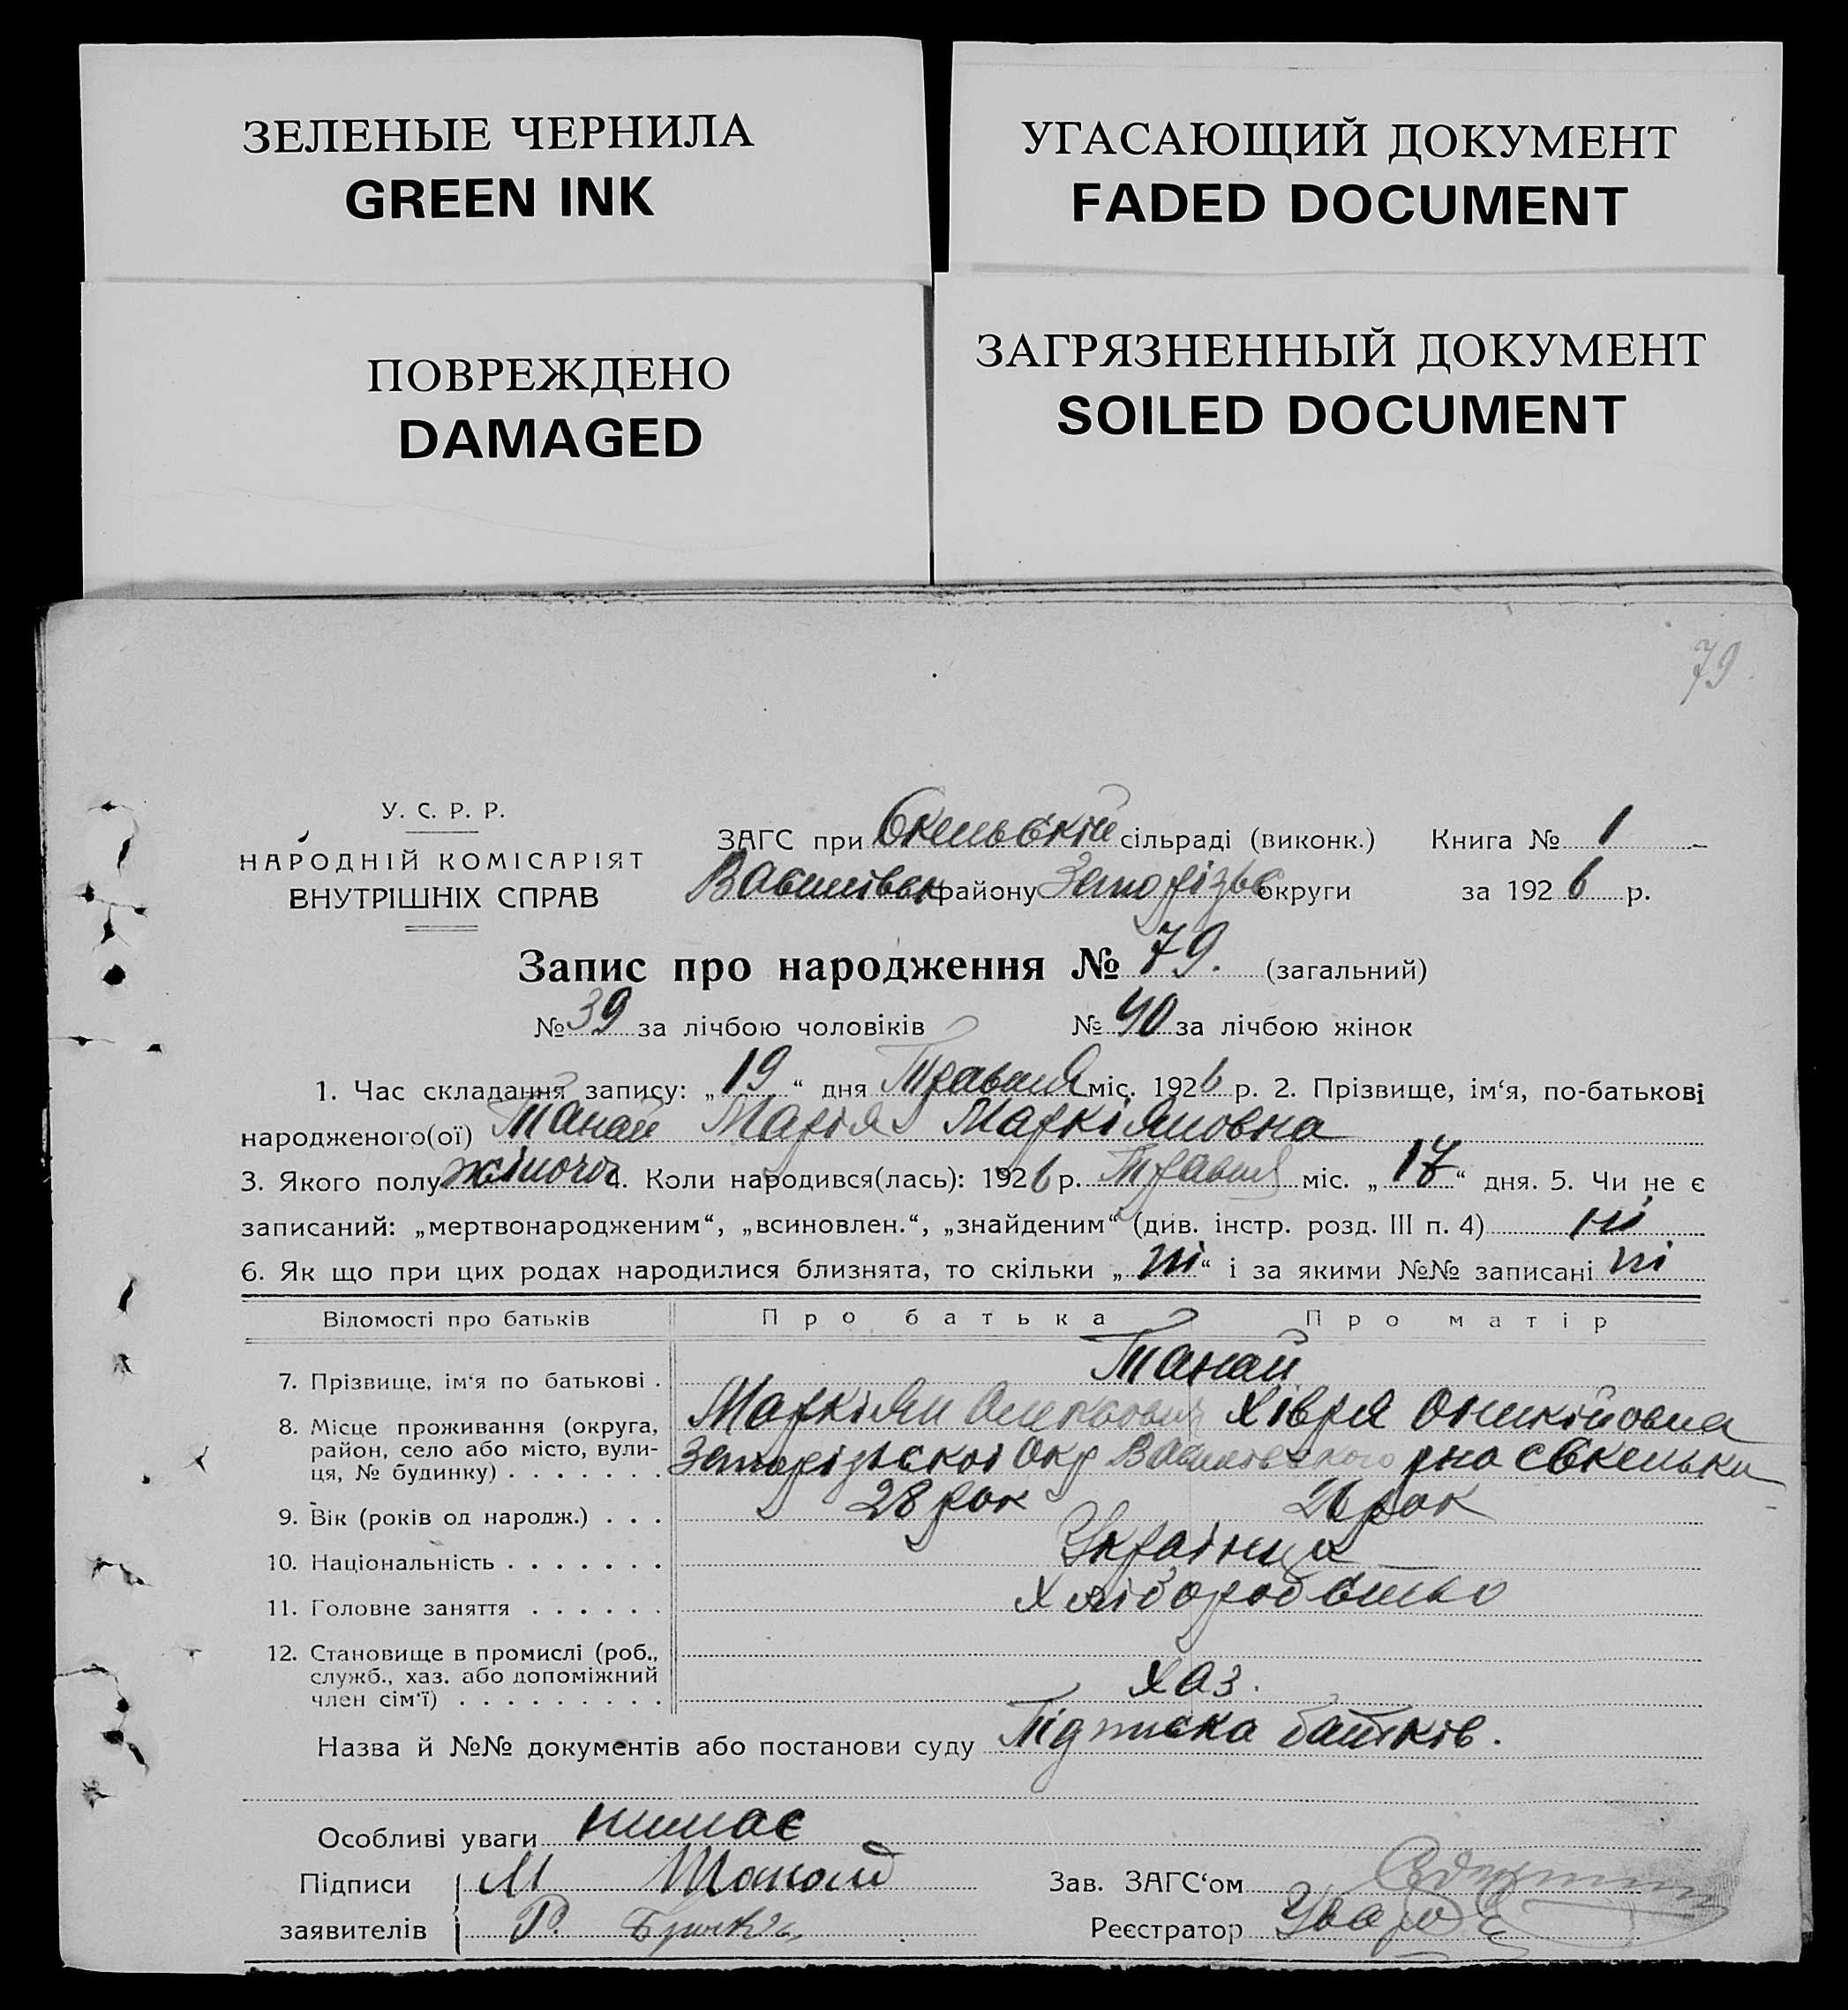 ЗЕЛЕНЫЕ ЧЕРНИЛА
GREEN INK
УГАСАЮЩИЙ ДОКУМЕНТ
FADED DOCUMENT
ПОВРЕЖДЕНО
DAMAGED
ЗАГРЯЗНЕННЫЙ ДОКУМЕНТ
SOILED DOCUMENT
79
У. С. Р. Р.
НАРОДНІЙ КОМІСАРІЯТ
ВНУТРІШНІХ СПРАВ
ЗАГС при сільраді (виконк.) Книга № 1
району округи за 1926 р.
Запис про народження № 79. (загальний)
№ 39 за лічбою чоловіків № 40 за лічбою жінок
1. Час складання запису: „19“ дня Травня міс. 1926 р. 2. Прізвище, ім‘я, по-батькові
народженого(ої) Танай Марія Маркіяновна
3. Якого полу жіночог 4. Коли народився(лась): 1926 р. Травня міс. „17“ дня. 5. Чи не є
записаний: „мертвонародженим“, „всиновлен.“, „знайденим“ (див. інстр. розд. III п. 4) ні
6. Як що при цих родах народилися близнята, то скільки „ні“ і за якими №№ записані ні
Відомості про батьків Про батька Про матір
7. Прізвище, ім‘я по батькові . Танай
Маркіян Хівря Оникійовна
8. Місце проживання (округа, район, село або місто, вулиця, № будинку) . . . . . . . Запорізьскоі Окр Василівского рна
9. Вік (років од народж.) . . . 28 рок 26 рок
10. Національність . . . . . . . Українца
11. Головне заняття . . . . . . Хліборобство
12. Становище в промислі (роб.,
служб., хаз. або допоміжний
член сім‘ї) . . . . . . . . . Хаз.
Назва й №№ документів або постанови суду Підписка батків.
Особливі уваги нимає
Підписи М Танай Зав. ЗАГС‘ом
заявителів Р. Реєстратор